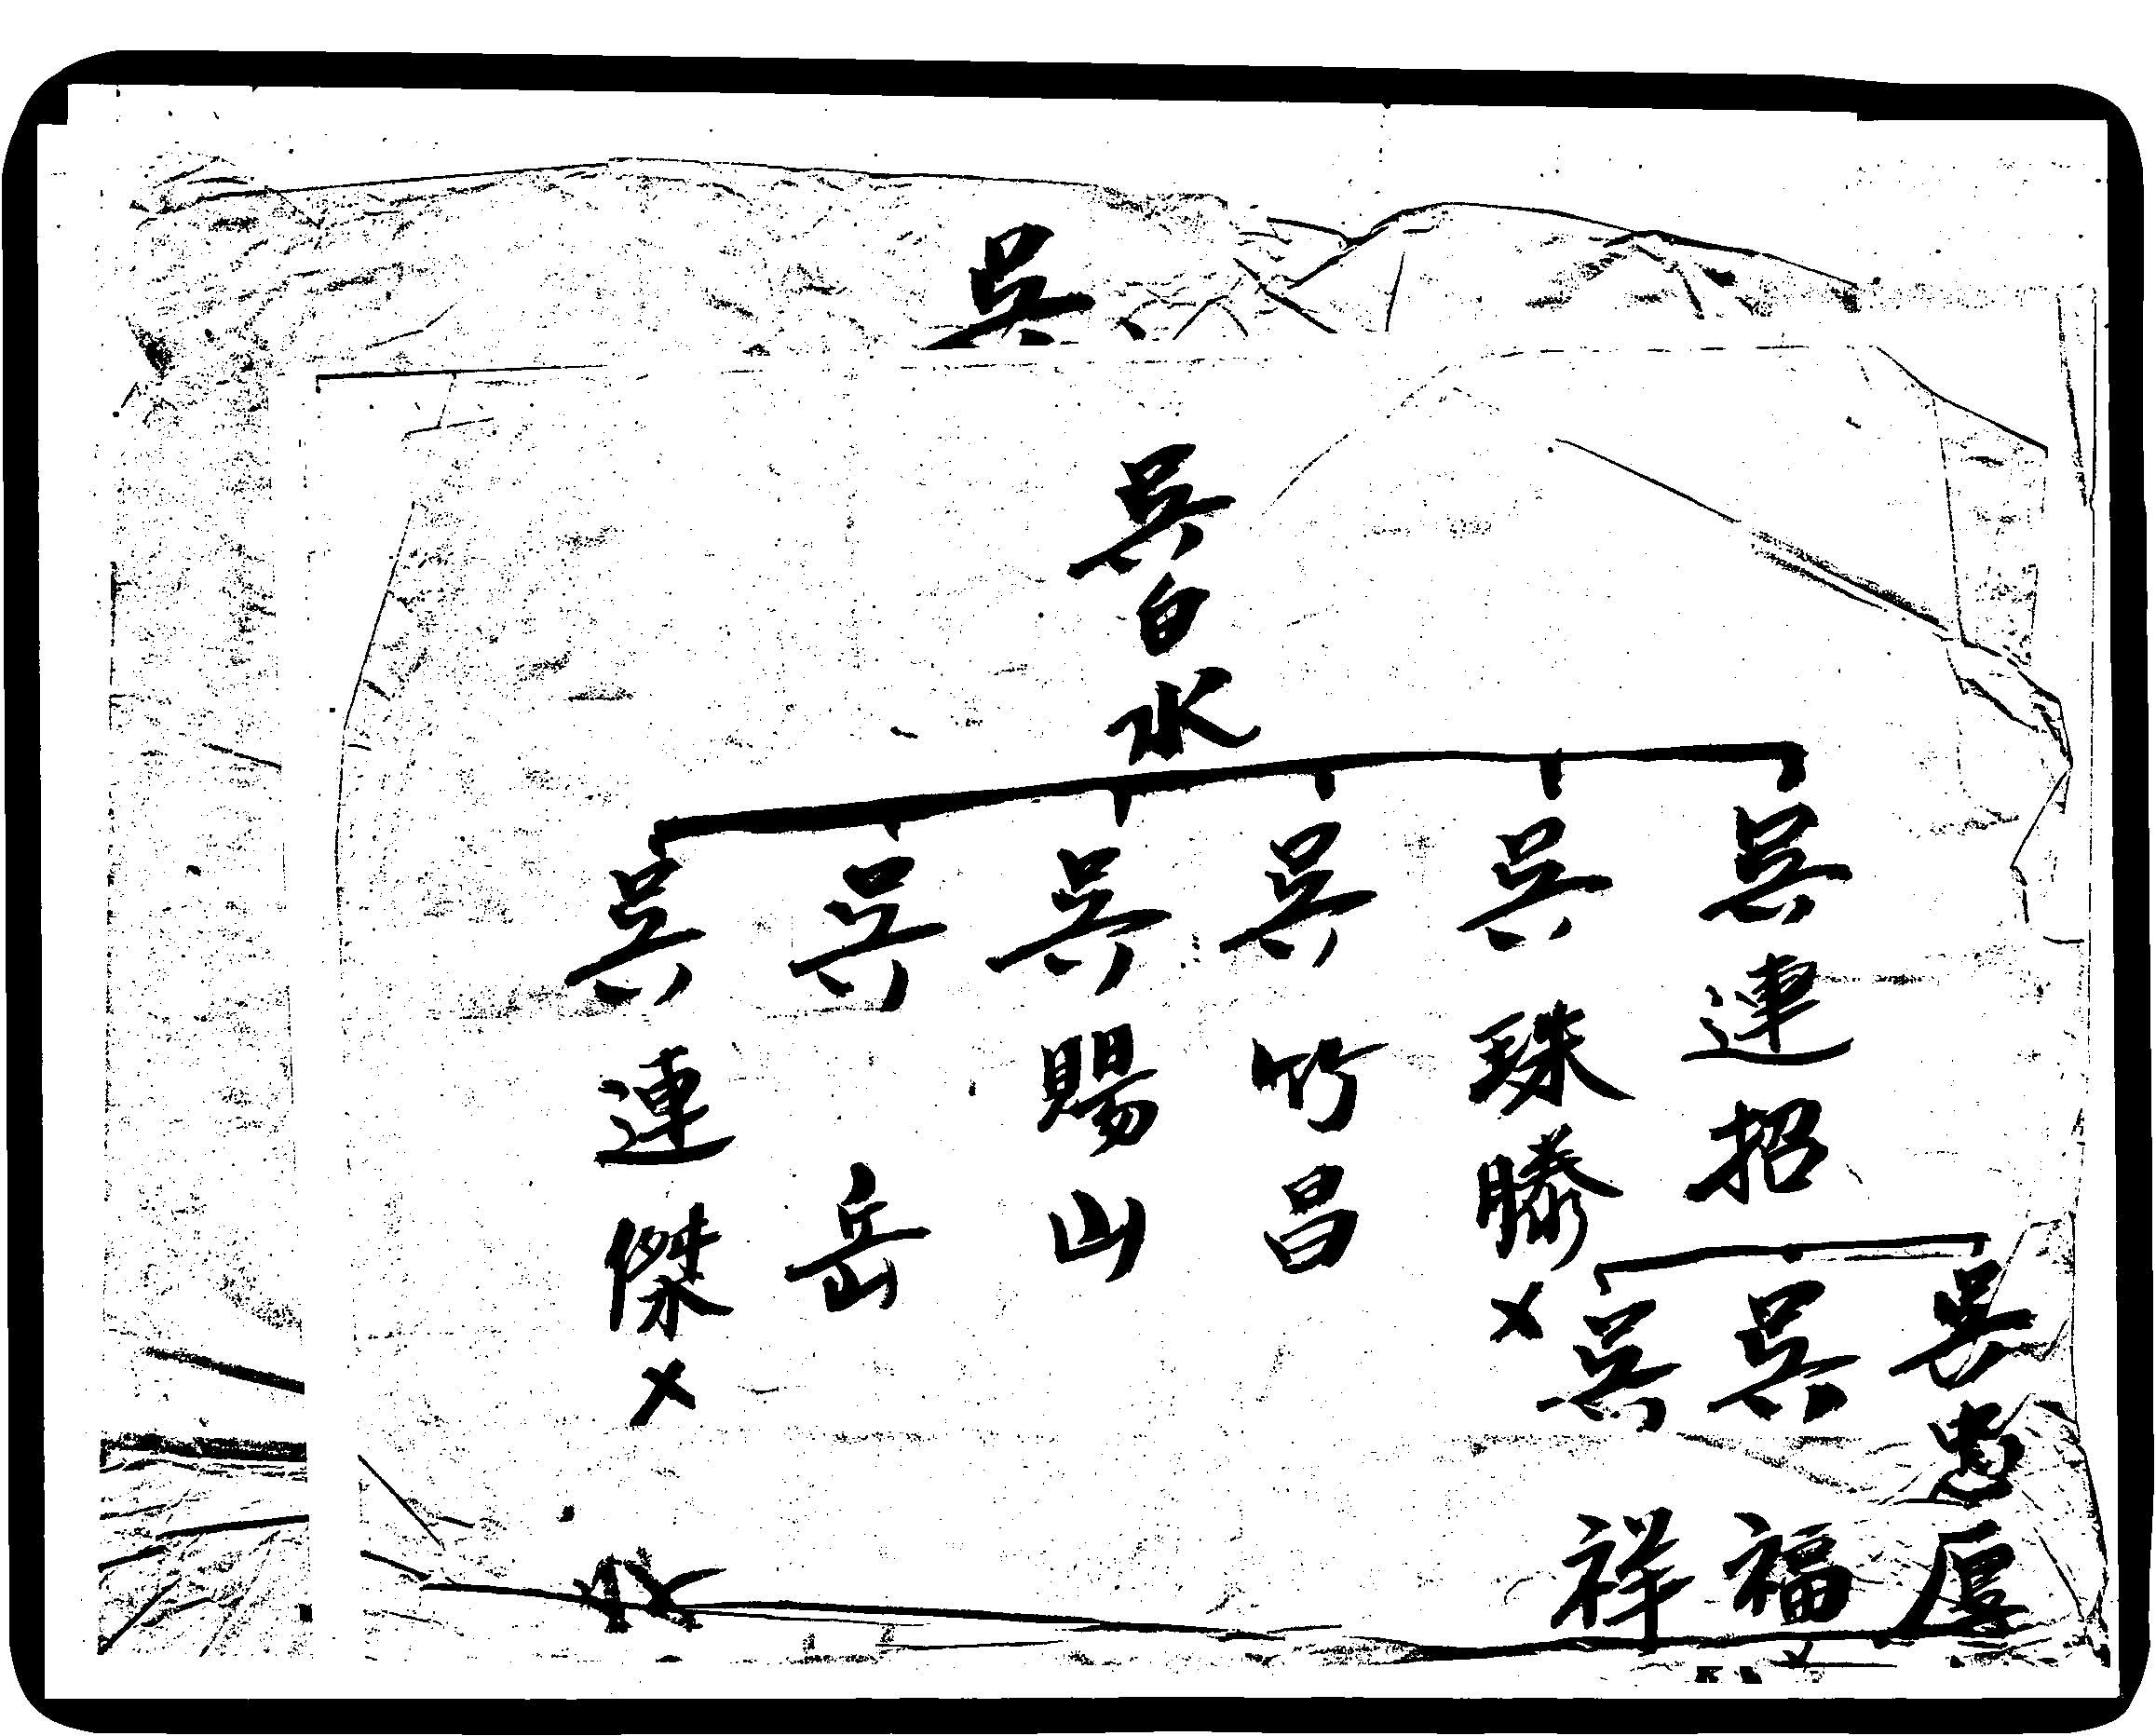 吳
吳白水
吳連招
吳珠勝×
吳竹昌
吳賜山
吳岳
吳連傑×
吳忠厚
吳福
吳祥